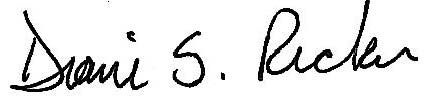 Diani S. Ricker